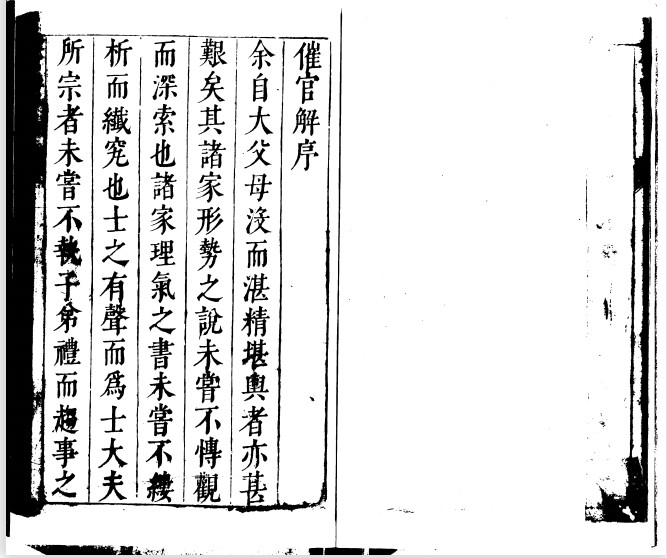 催官解序
余自大父母沒而湛精堪輿者亦甚
艱矣其諸家形勢之說未嘗不慱觀
而深索也諸家理氣之書未嘗不縷
析而纖究也士之有聲而爲士大夫
所宗者未嘗不執子弟禮而趨事之